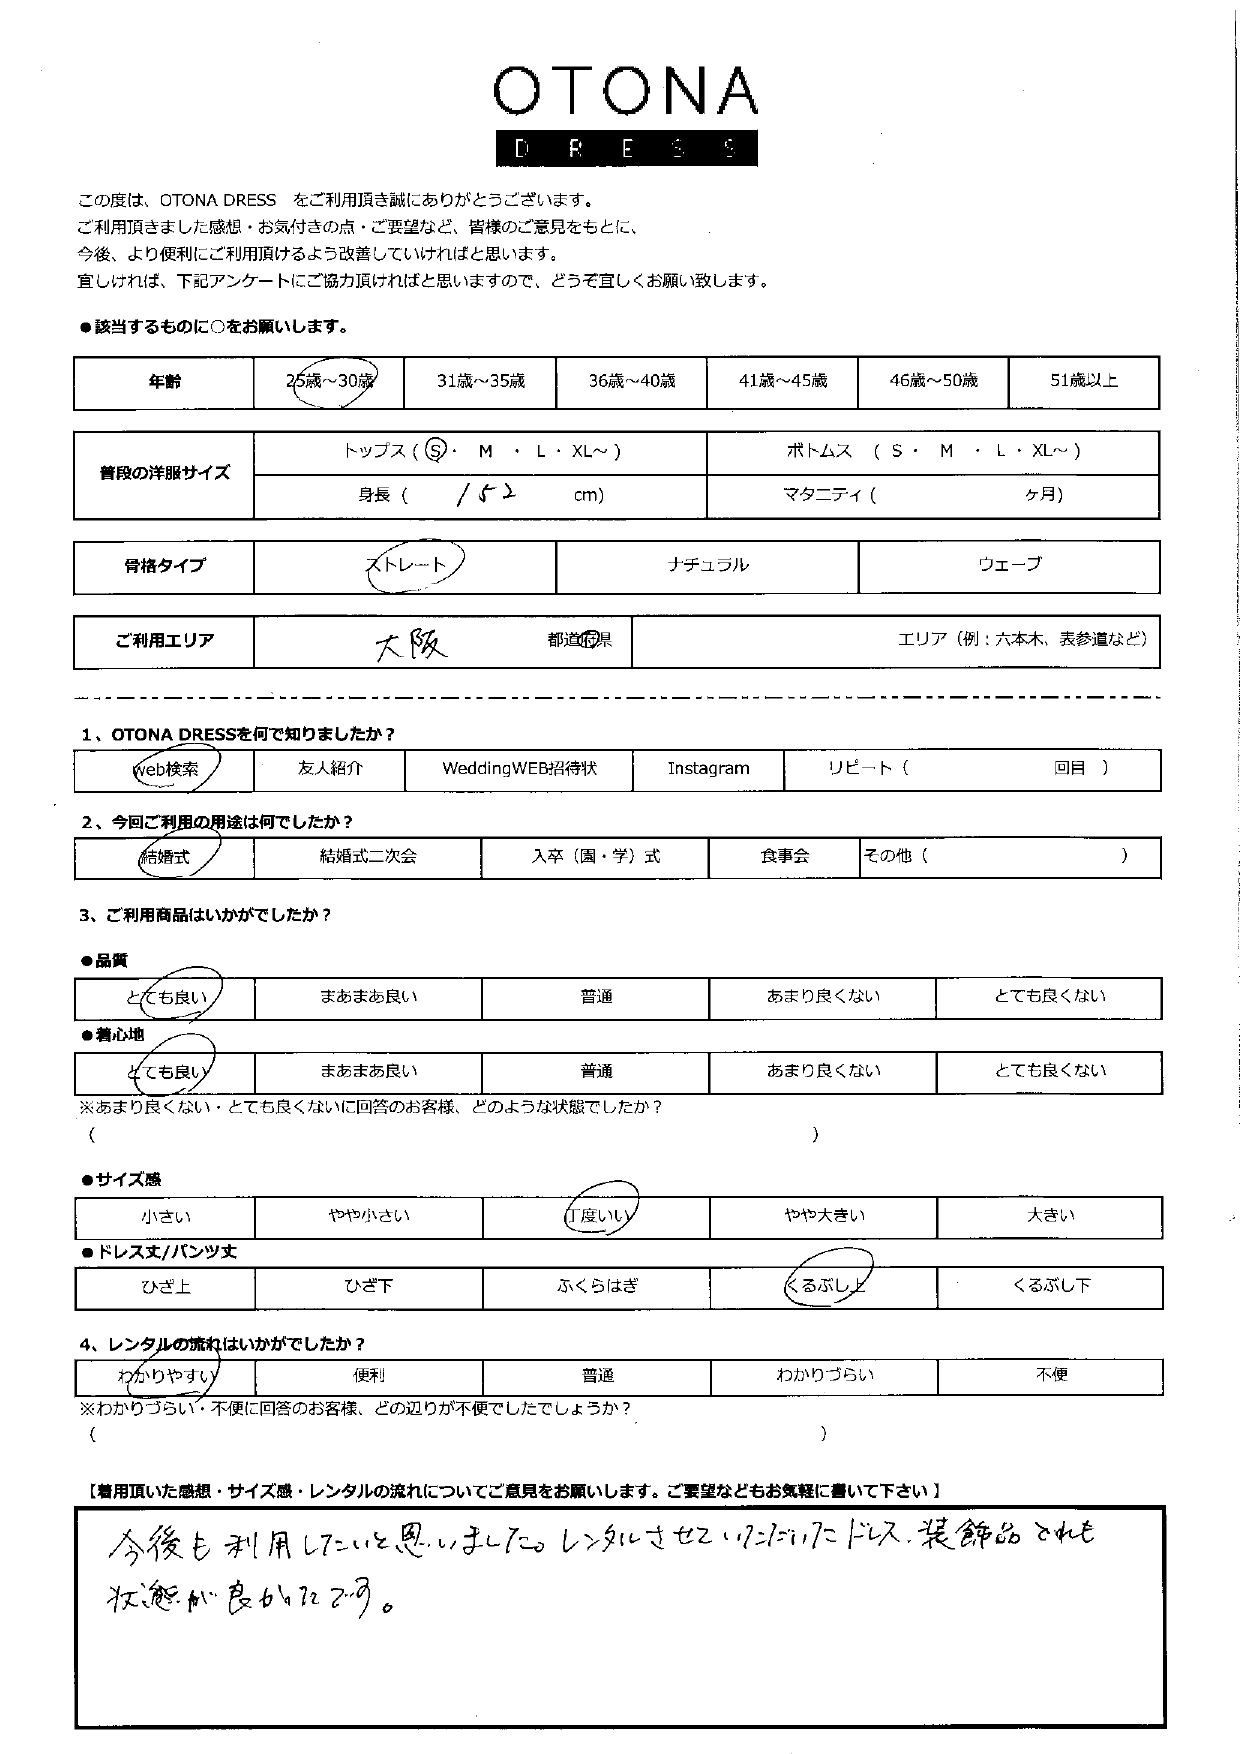 OTONA
DRESS
この度は、OTONA DRESS　をご利用頂き誠にありがとうございます。
ご利用頂きました感想・お気付きの点・ご要望など、皆様のご意見をもとに、
今後、より便利にご利用頂けるよう改善していければと思います。
宜しければ、下記アンケートにご協力頂ければと思いますので、どうぞ宜しくお願い致します。
●該当するものに○をお願いします。
年齢 25歳～30歳 31歳～35歳 36歳～40歳 41歳～45歳 46歳～50歳 51歳以上
普段の洋服サイズ トップス ( S ・ M ・ L ・ XL～ ) ボトムス ( S ・ M ・ L ・ XL～ )
身長 ( 152 cm) マタニティ ( ヶ月)
骨格タイプ ストレート ナチュラル ウェーブ
ご利用エリア 大阪 都道府県 エリア（例：六本木、表参道など）
1、OTONA DRESSを何で知りましたか？
web検索 友人紹介 WeddingWEB招待状 Instagram リピート（ 回目 ）
2、今回ご利用の用途は何でしたか？
結婚式 結婚式二次会 入卒（園・学）式 食事会 その他（ ）
3、ご利用商品はいかがでしたか？
●品質
とても良い まあまあ良い 普通 あまり良くない とても良くない
●着心地
とても良い まあまあ良い 普通 あまり良くない とても良くない
※あまり良くない・とても良くないに回答のお客様、どのような状態でしたか？
（ ）
●サイズ感
小さい やや小さい 丁度いい やや大きい 大きい
●ドレス丈/パンツ丈
ひざ上 ひざ下 ふくらはぎ くるぶし上 くるぶし下
4、レンタルの流れはいかがでしたか？
わかりやすい 便利 普通 わかりづらい 不便
※わかりづらい・不便に回答のお客様、どの辺りが不便でしたでしょうか？
（ ）
【着用頂いた感想・サイズ感・レンタルの流れについてご意見をお願いします。ご要望などもお気軽に書いて下さい】
今後も利用したいと思いました。レンタルさせていただいたドレス、装飾品どれも
状態が良かったです。